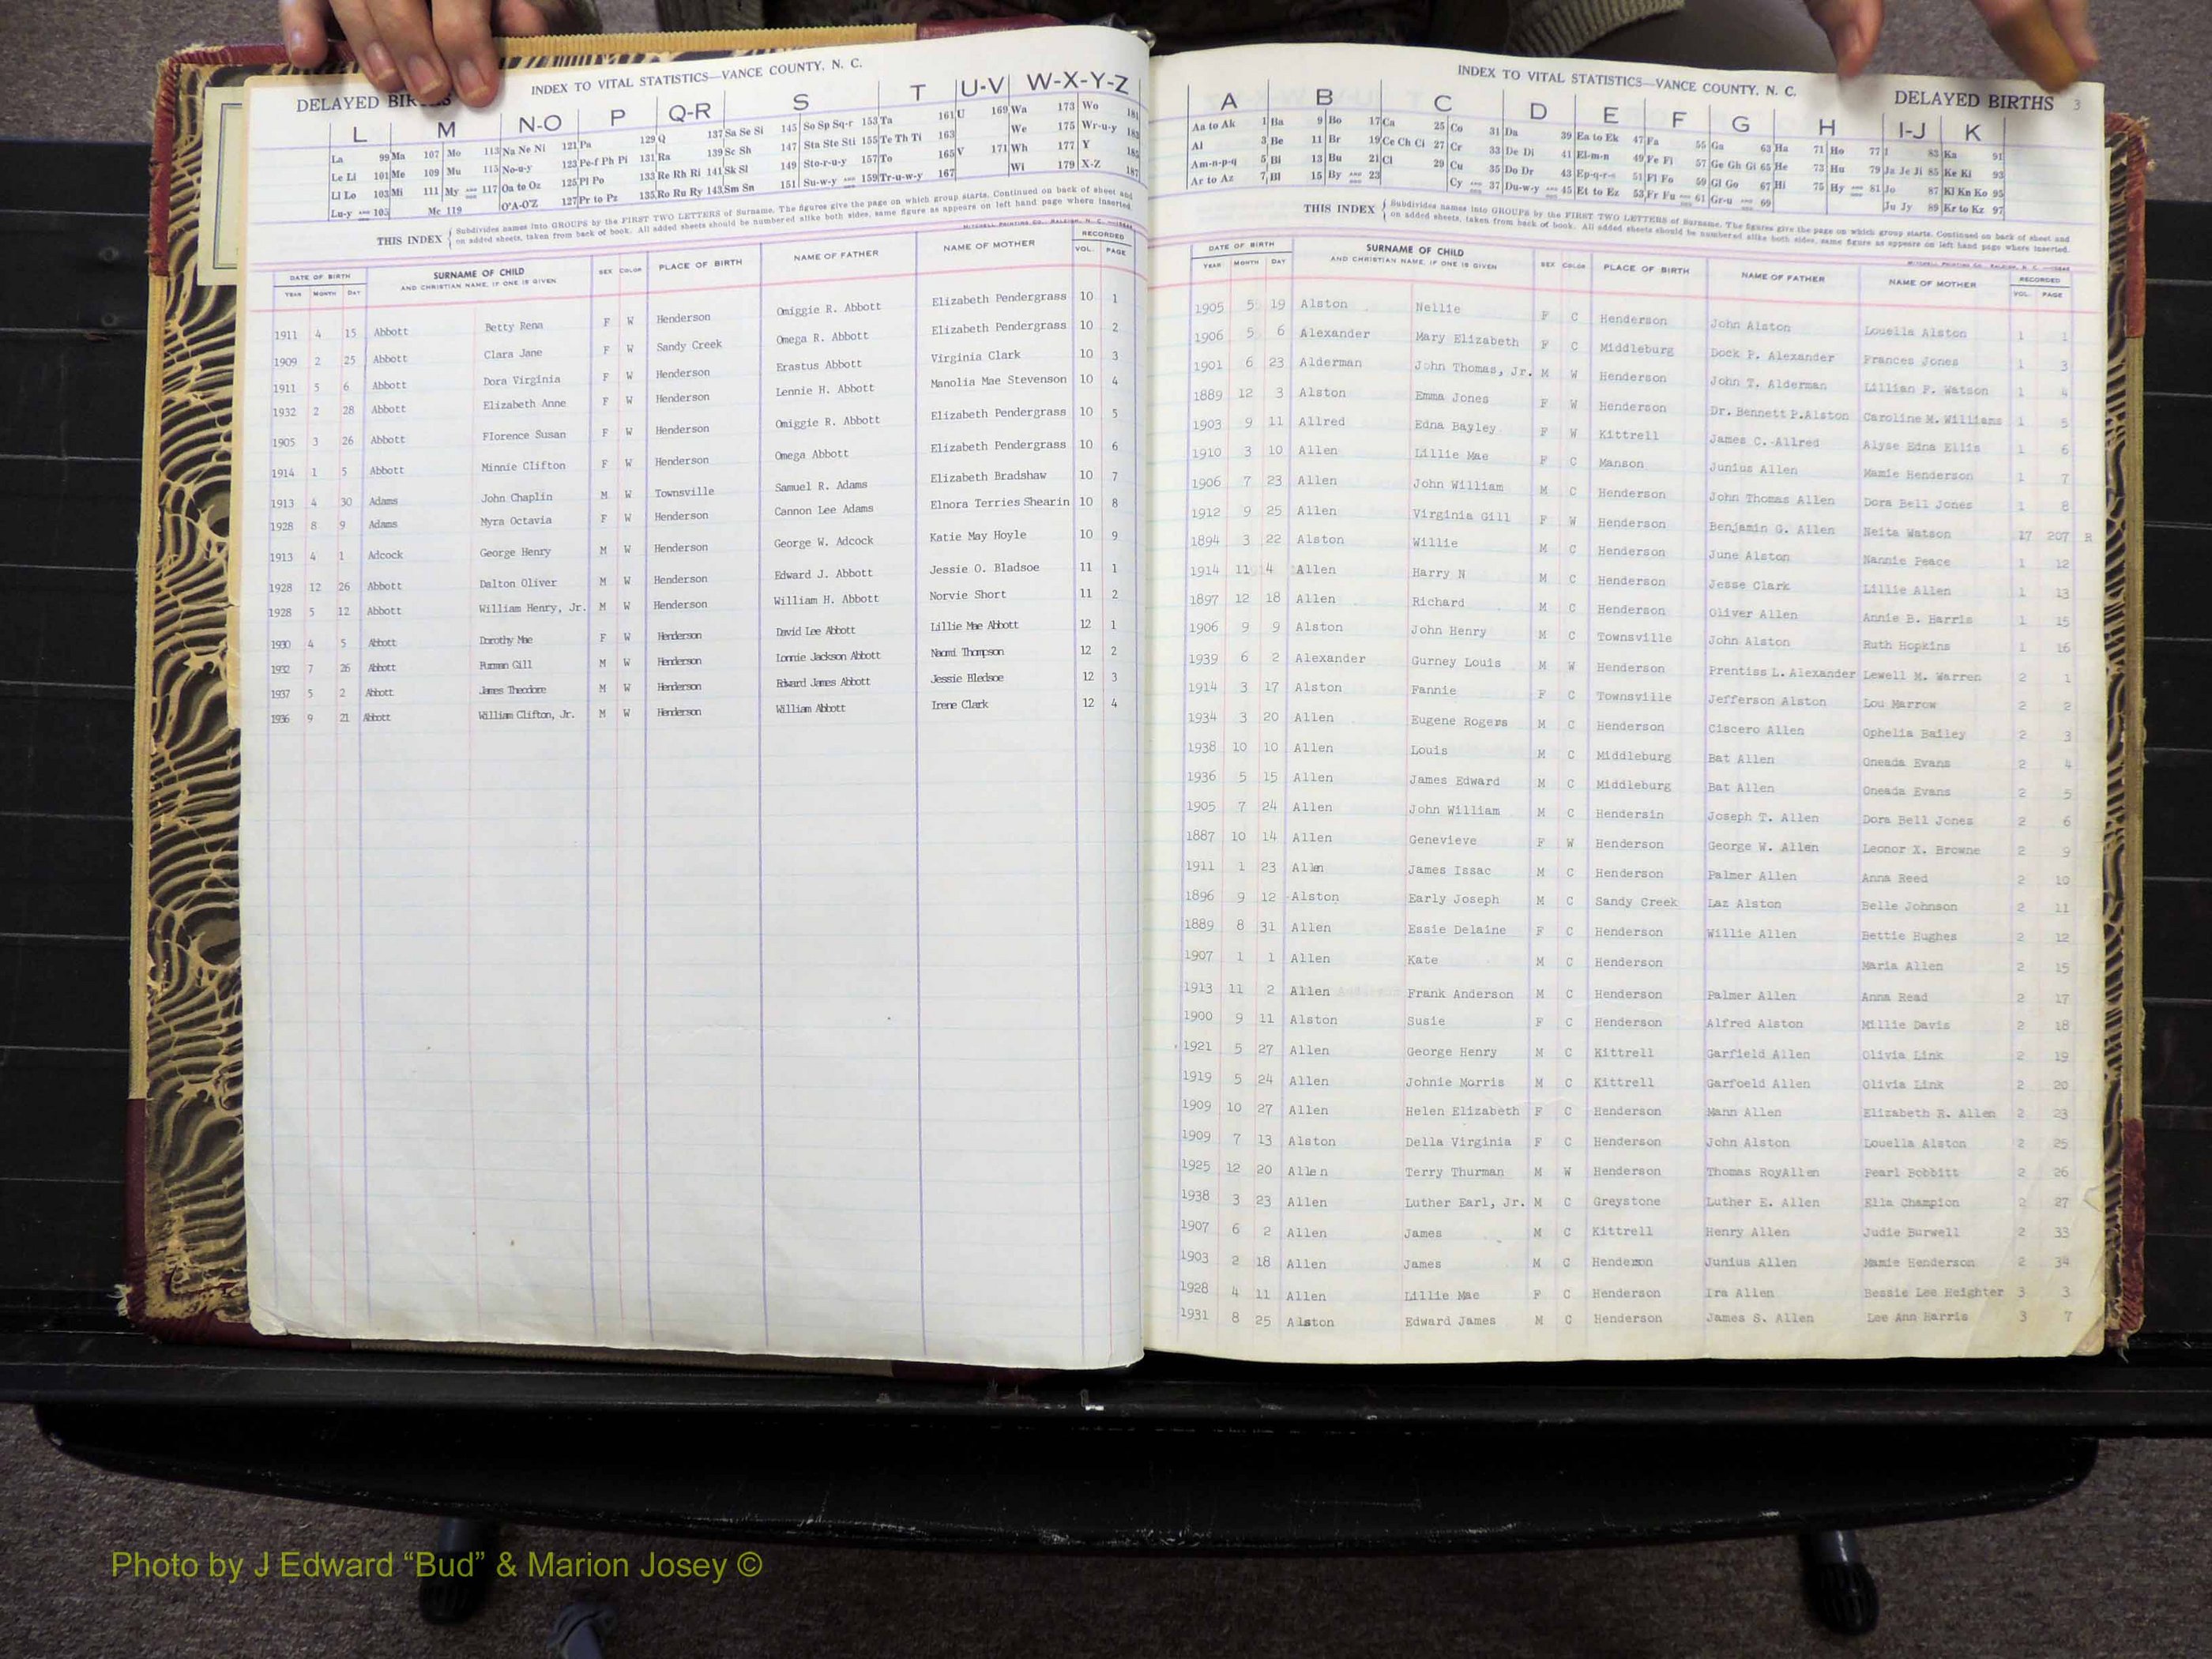 INDEX TO VITAL STATISTICS—VANCE COUNTY, N. C.
DELAYED BIRTHS
L M N-O P Q-R S T U-V W-X-Y-Z
La 99 Ma 107 Mo 113 Na Ne Ni 121 Pa 129 Q 137 Sa Se Si 145 So Sp Sq-r 153 Ta 161 U 169 Wa 173 Wo 181
Le Li 101 Me 109 Mu 115 No-u-y 123 Pe-f Ph Pi 131 Ra 139 Sc Sh 147 Sta Ste Sti 155 Te Th Ti 163 We 175 Wr-u-y 183
Ll Lo 103 Mi 111 My AND 117 Oa to Oz 125 Pl Po 133 Re Rh Ri 141 Sk Sl 149 Sto-r-u-y 157 To 165 V 171 Wh 177 Y 185
Lu-y AND 105 Mc 119 O'A-O'Z 127 Pr to Pz 135 Ro Ru Ry 143 Sm Sn 151 Su-w-y AND 159 Tr-u-w-y 167 Wi 179 X-Z 187
THIS INDEX { Subdivides names into GROUPS by the FIRST TWO LETTERS of Surname. The figures give the page on which group starts. Continued on back of sheet and
on added sheets, taken from back of book. All added sheets should be numbered alike both sides, same figure as appears on left hand page where inserted.
DATE OF BIRTH SURNAME OF CHILD SEX COLOR PLACE OF BIRTH NAME OF FATHER NAME OF MOTHER RECORDED
YEAR MONTH DAY AND CHRISTIAN NAME, IF ONE IS GIVEN VOL. PAGE
1911 4 15 Abbott Betty Rena F W Henderson Omiggie R. Abbott Elizabeth Pendergrass 10 1
1909 2 25 Abbott Clara Jane F W Sandy Creek Omega R. Abbott Elizabeth Pendergrass 10 2
1911 5 6 Abbott Dora Virginia F W Henderson Erastus Abbott Virginia Clark 10 3
1932 2 28 Abbott Elizabeth Anne F W Henderson Lennie H. Abbott Manolia Mae Stevenson 10 4
1905 3 26 Abbott Florence Susan F W Henderson Omiggie R. Abbott Elizabeth Pendergrass 10 5
1914 1 5 Abbott Minnie Clifton F W Henderson Omega Abbott Elizabeth Pendergrass 10 6
1913 4 30 Adams John Chaplin M W Townsville Samuel R. Adams Elizabeth Bradshaw 10 7
1928 8 9 Adams Myra Octavia F W Henderson Cannon Lee Adams Elnora Terries Shearin 10 8
1913 4 1 Adcock George Henry M W Henderson George W. Adcock Katie May Hoyle 10 9
1928 12 26 Abbott Dalton Oliver M W Henderson Edward J. Abbott Jessie O. Bladsoe 11 1
1928 5 12 Abbott William Henry, Jr. M W Henderson William H. Abbott Norvie Short 11 2
1930 4 5 Abbott Dorothy Mae F W Henderson David Lee Abbott Lillie Mae Abbott 12 1
1932 7 26 Abbott Furman Gill M W Henderson Lonnie Jackson Abbott Naomi Thompson 12 2
1937 5 2 Abbott James Theodore M W Henderson Edward James Abbott Jessie Bledsoe 12 3
1936 9 21 Abbott William Clifton, Jr. M W Henderson William Abbott Irene Clark 12 4
INDEX TO VITAL STATISTICS—VANCE COUNTY, N. C.
DELAYED BIRTHS 3
A B C D E F G H I-J K
Aa to Ak 1 Ba 9 Bo 17 Ca 25 Co 31 Da 39 Ea to Ek 47 Fa 55 Ga 63 Ha 71 Ho 77 I 83 Ka 91
Al 3 Be 11 Br 19 Ce Ch Ci 27 Cr 33 De Di 41 El-m-n 49 Fe Fi 57 Ge Gh Gi 65 He 73 Hu 79 Ja Je Ji 85 Ke Ki 93
Am-n-p-q 5 Bi 13 Bu 21 Cl 29 Cu 35 Do Dr 43 Ep-q-r-s 51 Fl Fo 59 Gl Go 67 Hi 75 Hy AND 81 Jo 87 Kl Kn Ko 95
Ar to Az 7 Bl 15 By AND 23 Cy AND 37 Du-w-y AND 45 Et to Ez 53 Fr Fu AND 61 Gr-u AND 69 Ju Jy 89 Kr to Kz 97
THIS INDEX { Subdivides names into GROUPS by the FIRST TWO LETTERS of Surname. The figures give the page on which group starts. Continued on back of sheet and
on added sheets, taken from back of book. All added sheets should be numbered alike both sides, same figure as appears on left hand page where inserted.
DATE OF BIRTH SURNAME OF CHILD SEX COLOR PLACE OF BIRTH NAME OF FATHER NAME OF MOTHER RECORDED
YEAR MONTH DAY AND CHRISTIAN NAME, IF ONE IS GIVEN VOL. PAGE
1905 5 19 Alston Nellie F C Henderson John Alston Louella Alston 1 1
1906 5 6 Alexander Mary Elizabeth F C Middleburg Dock P. Alexander Frances Jones 1 3
1901 6 23 Alderman John Thomas, Jr. M W Henderson John T. Alderman Lillian F. Watson 1 4
1889 12 3 Alston Emma Jones F W Henderson Dr. Bennett P.Alston Caroline M. Williams 1 5
1903 9 11 Allred Edna Bayley F W Kittrell James C. Allred Alyse Edna Ellis 1 6
1910 3 10 Allen Lillie Mae F C Manson Junius Allen Mamie Henderson 1 7
1906 7 23 Allen John William M C Henderson John Thomas Allen Dora Bell Jones 1 8
1912 9 25 Allen Virginia Gill F W Henderson Benjamin G. Allen Neita Watson 17 207 R
1894 3 22 Alston Willie M C Henderson June Alston Nannie Peace 1 12
1914 11 4 Allen Harry N M C Henderson Jesse Clark Lillie Allen 1 13
1897 12 18 Allen Richard M C Henderson Oliver Allen Annie B. Harris 1 15
1906 9 9 Alston John Henry M C Townsville John Alston Ruth Hopkins 1 16
1939 6 2 Alexander Gurney Louis M W Henderson Prentiss L. Alexander Lewell M. Warren 2 1
1914 3 17 Alston Fannie F C Townsville Jefferson Alston Lou Marrow 2 2
1934 3 20 Allen Eugene Rogers M C Henderson Ciscero Allen Ophelia Bailey 2 3
1938 10 10 Allen Louis M C Middleburg Bat Allen Oneada Evans 2 4
1936 5 15 Allen James Edward M C Middleburg Bat Allen Oneada Evans 2 5
1905 7 24 Allen John William M C Hendersin Joseph T. Allen Dora Bell Jones 2 6
1887 10 14 Allen Genevieve F W Henderson George W. Allen Leonor X. Browne 2 9
1911 1 23 Allen James Issac M C Henderson Palmer Allen Anna Reed 2 10
1896 9 12 Alston Early Joseph M C Sandy Creek Laz Alston Belle Johnson 2 11
1889 8 31 Allen Essie Delaine F C Henderson Willie Allen Bettie Hughes 2 12
1907 1 1 Allen Kate M C Henderson Maria Allen 2 15
1913 11 2 Allen Frank Anderson M C Henderson Palmer Allen Anna Read 2 17
1900 9 11 Alston Susie F C Henderson Alfred Alston Millie Davis 2 18
1921 5 27 Allen George Henry M C Kittrell Garfield Allen Olivia Link 2 19
1919 5 24 Allen Johnie Morris M C Kittrell Garfoeld Allen Olivia Link 2 20
1909 10 27 Allen Helen Elizabeth F C Henderson Mann Allen Elizabeth R. Allen 2 23
1909 7 13 Alston Della Virginia F C Henderson John Alston Louella Alston 2 25
1925 12 20 Allen Terry Thurman M W Henderson Thomas RoyAllen Pearl Bobbitt 2 26
1938 3 23 Allen Luther Earl, Jr. M C Greystone Luther E. Allen Ella Champion 2 27
1907 6 2 Allen James M C Kittrell Henry Allen Judie Burwell 2 33
1903 2 18 Allen James M C Henderson Junius Allen Mamie Henderson 2 34
1928 4 11 Allen Lillie Mae F C Henderson Ira Allen Bessie Lee Heighter 3 3
1931 8 25 Alston Edward James M C Henderson James S. Allen Lee Ann Harris 3 7
Photo by J Edward “Bud” & Marion Josey ©